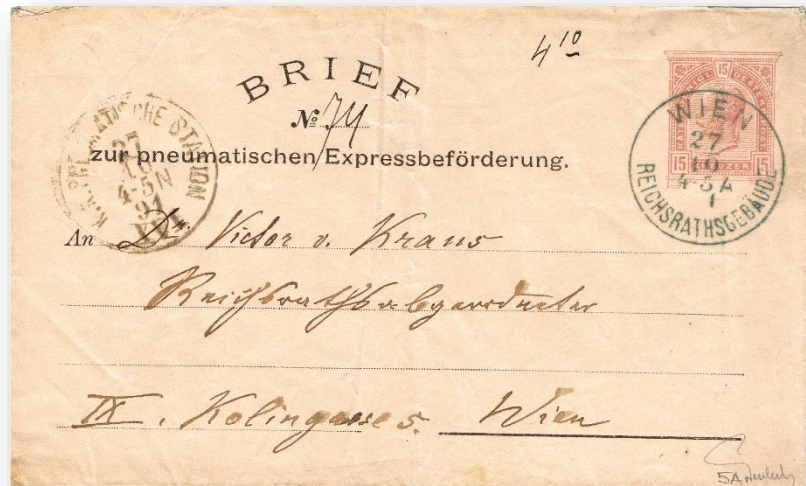 4 10
BRIEF
15
№ 74
zur pneumatischen Expressbeförderung.
15 KREUZER 15
K.K. PNEUMATISCHE STATION
27
10
4-5N
91
WIEN
27
10
4-5A
1
REICHSRATHSGEBÄUDE
An Dr. Victor v. Kraus
Reichsrathsabgeordneter
IX. Kolingasse 5. Wien
5A